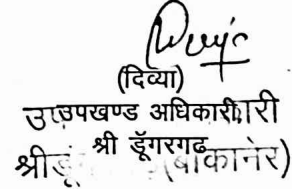 (दिव्या)
उपखण्ड अधिकारी
श्री डूँगरगढ
श्रीडूं (बीकानेर)